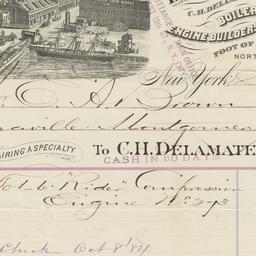 C.H. DELA
BOILER
ENGINE BUILDERS
FOOT OF
NOR
New York
C. A. Brown
Montgomer
AIRING A SPECIALTY
To C.H. DELAMATE
CASH IN 30 DAYS.
To 1 6" "Rider" Compression
Engine No 293
Check Oct 8' 84